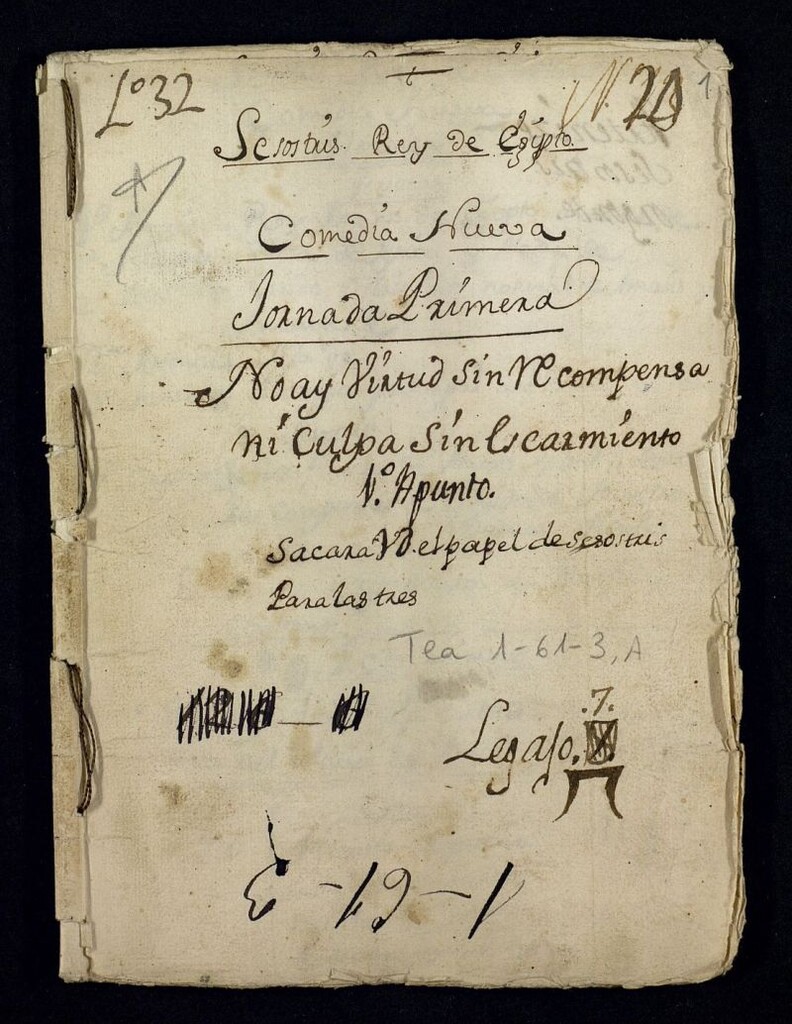 Lº 32
N. 20
1
A
Sesostris. Rey de Egipto.
Comedia Nueva
Jornada Primera
No ay Virtud sin Recompensa
ni Culpa sin Escarmiento
1.º Apunto.
Sacara VD. el papel de Sesostris
Para las tres
Tea 1-61-3, A
.7.
Legajo.
1-61-3